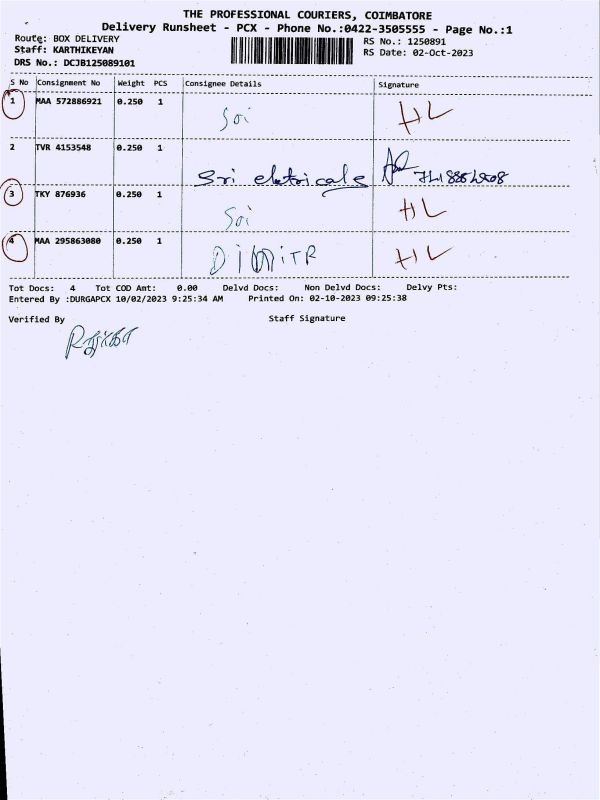 THE PROFESSIONAL COURIERS, COIMBATORE
Delivery Runsheet - PCX - Phone No.:0422-3505555 - Page No.:1
Route: BOX DELIVERY RS No.: 1250891
Staff: KARTHIKEYAN RS Date: 02-Oct-2023
DRS No.: DCJB125089101
S No Consignment No Weight PCS Consignee Details Signature
1 MAA 572886921 0.250 1 HL
2 TVR 4153548 0.250 1
Sri eletricals
3 TKY 876936 0.250 1 HL
4 MAA 295863080 0.250 1 HL
Tot Docs: 4 Tot COD Amt: 0.00 Delvd Docs: Non Delvd Docs: Delvy Pts:
Entered By :DURGAPCX 10/02/2023 9:25:34 AM Printed On: 02-10-2023 09:25:38
Verified By Staff Signature